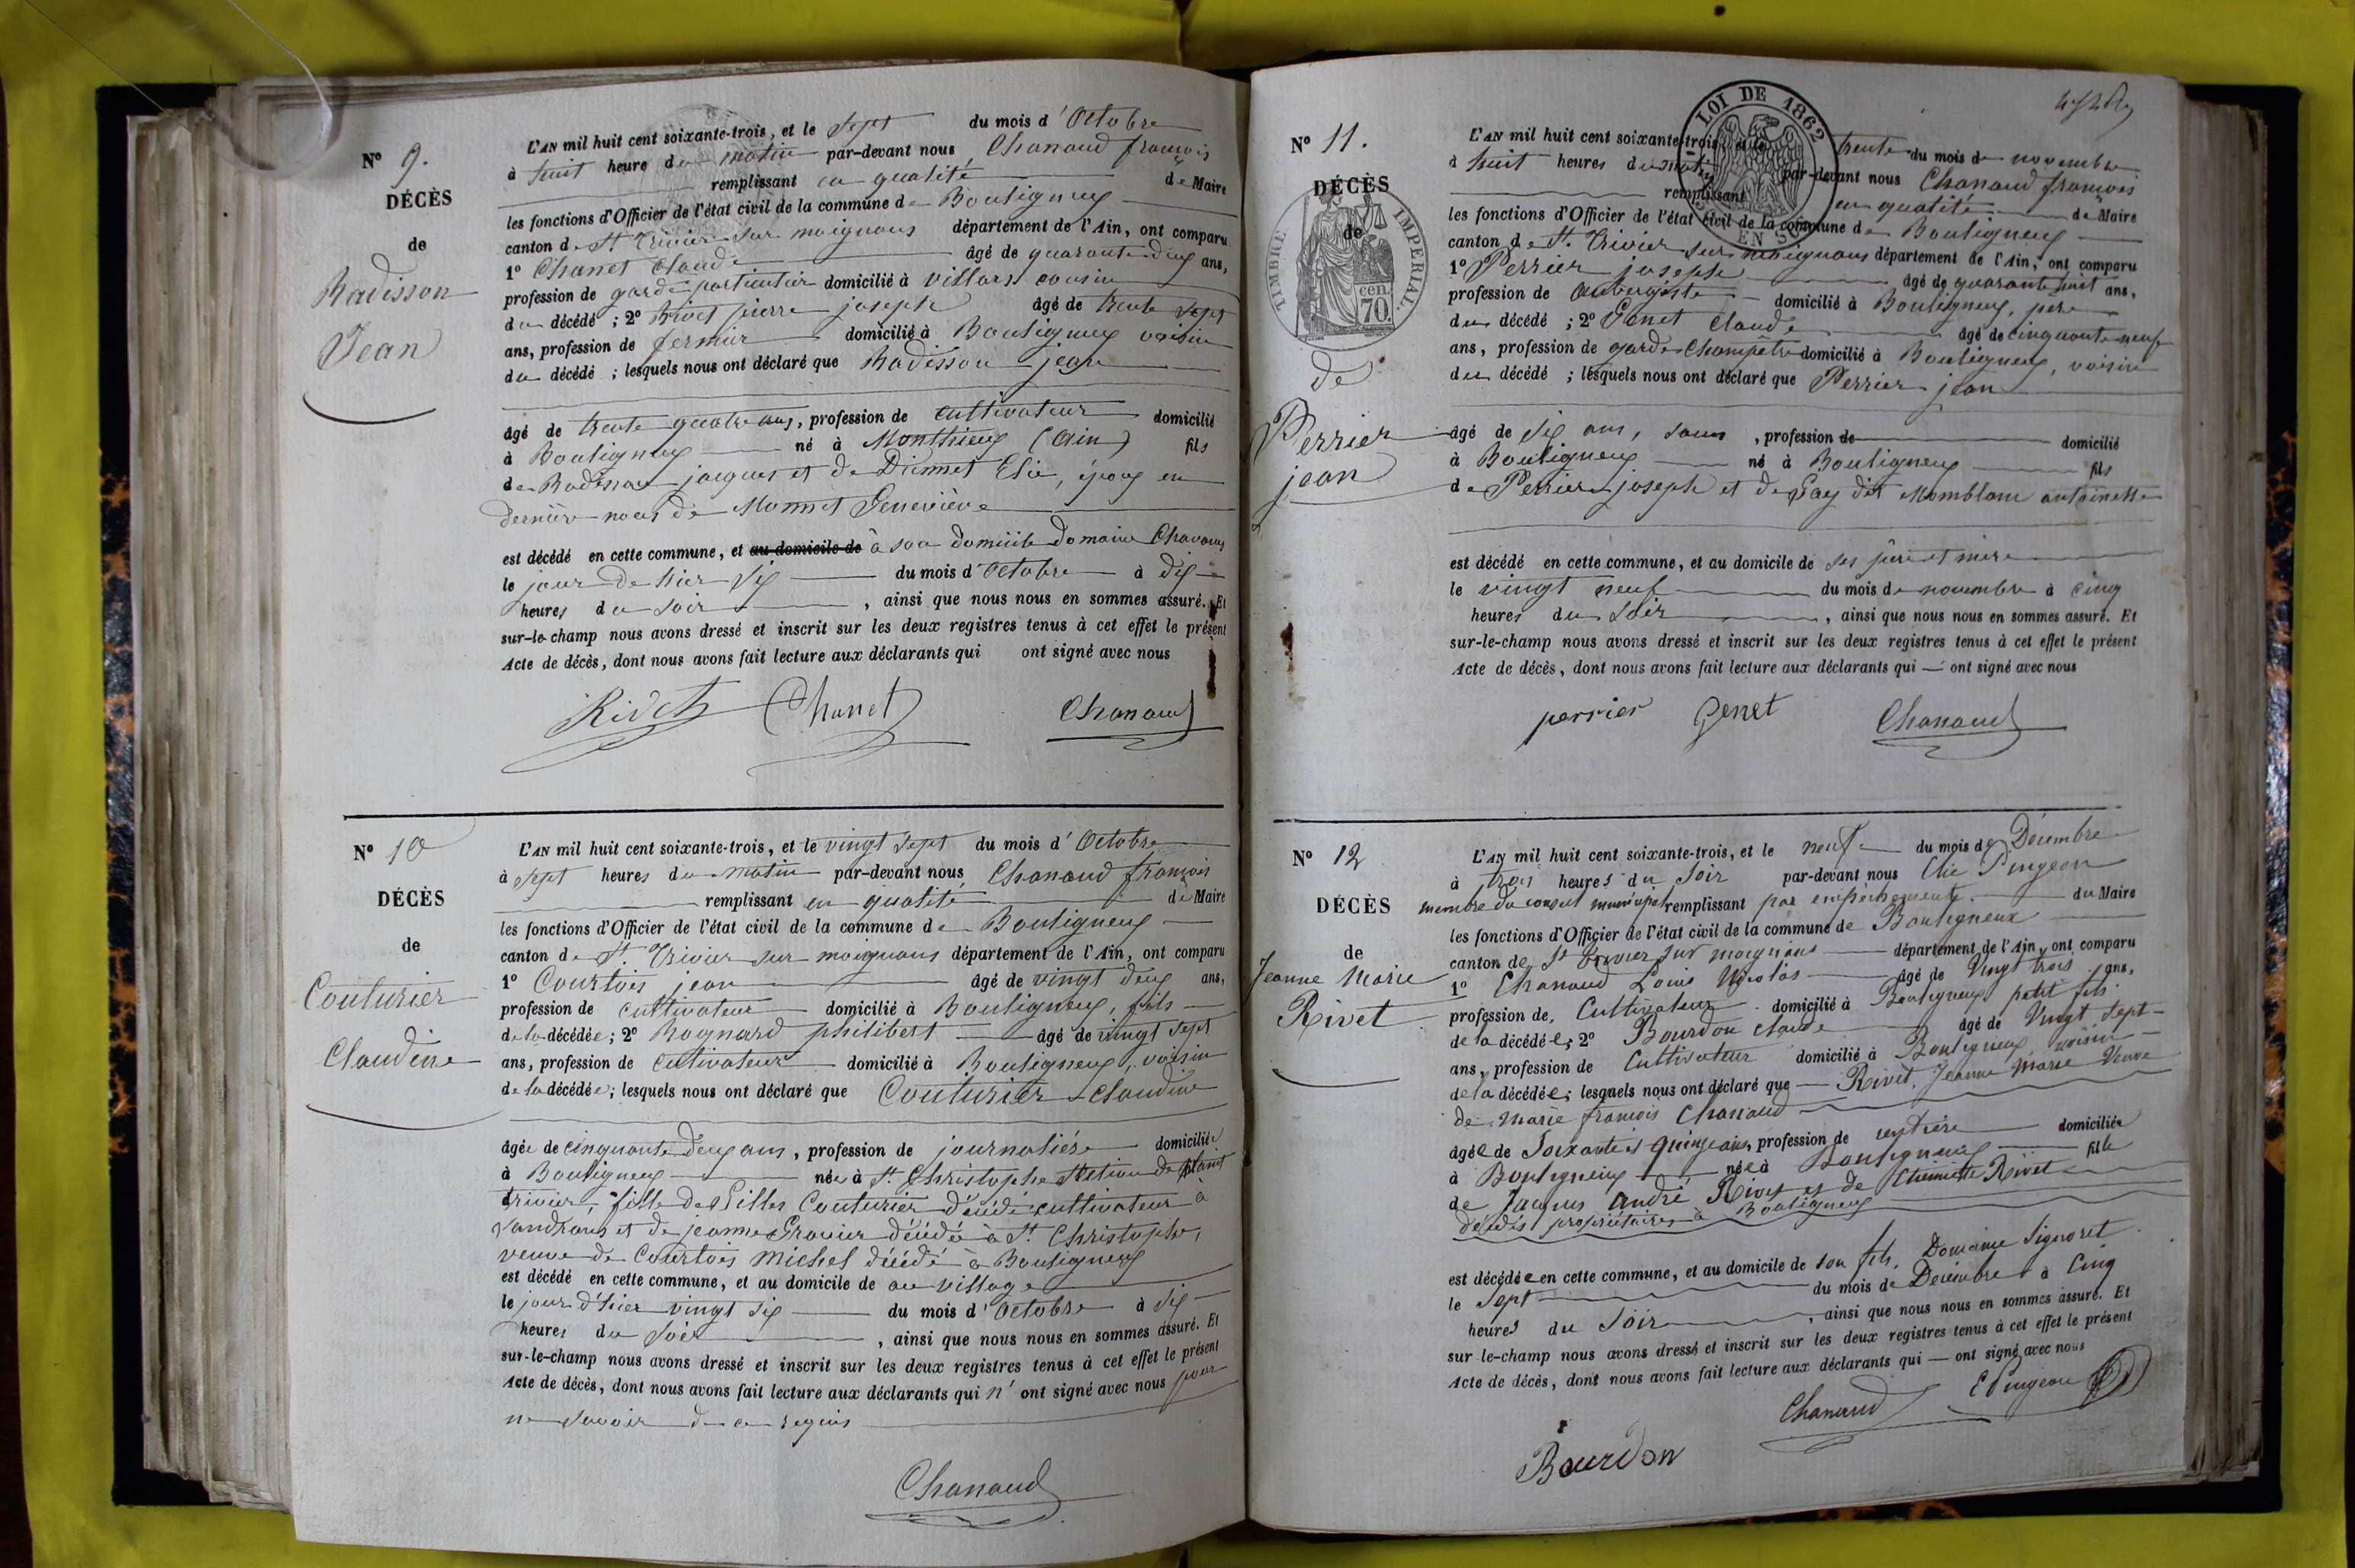 N° 9.
DÉCÈS
de
Radisson
Jean
L'AN mil huit cent soixante-trois, et le sept du mois d'Octobre
à huit heure du matin par-devant nous Chanaud françois
remplissant en qualité de Maire
les fonctions d'Officier de l'état civil de la commune de Bouligneux
canton de St Trivier sur moignans département de l'Ain, ont comparu
1° Chanet Claude âgé de quarante deux ans,
profession de garde particulier domicilié à Villars cousin
du décédé ; 2° Rivet pierre joseph âgé de trente sept
ans, profession de fermier domicilié à Bouligneux voisin
du décédé ; lesquels nous ont déclaré que Radisson jean
âgé de trente quatre ans, profession de cultivateur domicilié
à Bouligneux né à Monthieux (Ain) fils
de Radisson jacques et de Diennet Elie, époux en
dernière noces de Monnet Geneviève
est décédé en cette commune, et au domicile de à son domicile domaine Chavanes
le jour de hier six du mois d'Octobre à dix
heures du soir , ainsi que nous nous en sommes assuré. Et
sur-le-champ nous avons dressé et inscrit sur les deux registres tenus à cet effet le présent
Acte de décès, dont nous avons fait lecture aux déclarants qui ont signé avec nous
Rivet Chanet Chanaud
N° 10
DÉCÈS
de
Couturier
Claudine
L'AN mil huit cent soixante-trois, et le vingt sept du mois d'Octobre
à sept heures du matin par-devant nous Chanaud françois
remplissant en qualité de Maire
les fonctions d'Officier de l'état civil de la commune de Bouligneux
canton de St. Trivier sur moignans département de l'Ain, ont comparu
1° Courtois jean âgé de vingt deux ans,
profession de cultivateur domicilié à Bouligneux, fils
de la décédée ; 2° Rognard philibert âgé de vingt sept
ans, profession de cultivateur domicilié à Bouligneux, voisin
de la décédée ; lesquels nous ont déclaré que Couturier Claudine
âgée de cinquante deux ans, profession de journalière domiciliée
à Bouligneux née à St. Christophe section de Saint
trivier, fille de Gilles Couturier décédé cultivateur à
Sandrans et de jeanne Gravier décédée à St. Christophe,
veuve de Courtois Michel décédé à Bouligneux
est décédé en cette commune, et au domicile de au village
le jour d'hier vingt six du mois d'Octobre à six
heures du soir , ainsi que nous nous en sommes assuré. Et
sur-le-champ nous avons dressé et inscrit sur les deux registres tenus à cet effet le présent
Acte de décès, dont nous avons fait lecture aux déclarants qui n'ont signé avec nous pour
ne savoir de ce requis
Chanaud
LOI DE 1862
EN SUS
TIMBRE IMPÉRIAL.
70 cen.
N° 11.
DÉCÈS
de
de
Perrier
jean
L'AN mil huit cent soixante-trois, et le trente du mois de novembre
à huit heures du matin par-devant nous Chanaud françois
remplissant en qualité de Maire
les fonctions d'Officier de l'état civil de la commune de Bouligneux
canton de St. Trivier sur moignans département de l'Ain, ont comparu
1° Perrier joseph âgé de quarante huit ans,
profession de Aubergiste domicilié à Bouligneux, père
du décédé ; 2° Genet Claude âgé de cinquante neuf
ans, profession de garde Champêtre domicilié à Bouligneux, voisin
du décédé ; lesquels nous ont déclaré que Perrier jean
âgé de six ans, sans , profession de domicilié
à Bouligneux né à Bouligneux fils
de Perrier joseph et de Gay dit Momblanc antoinette
est décédé en cette commune, et au domicile de ses père et mère
le vingt neuf du mois de novembre à cinq
heures du soir , ainsi que nous nous en sommes assuré. Et
sur-le-champ nous avons dressé et inscrit sur les deux registres tenus à cet effet le présent
Acte de décès, dont nous avons fait lecture aux déclarants qui ont signé avec nous
perrier Genet Chanaud
N° 12
DÉCÈS
de
Jeanne Marie
Rivet
L'AN mil huit cent soixante-trois, et le neuf du mois de Décembre
à trois heures du soir par-devant nous Elie Pingeon
membre du conseil municipal remplissant par empêchement du Maire
les fonctions d'Officier de l'état civil de la commune de Bouligneux
canton de St Trivier sur moignans département de l'Ain, ont comparu
1° Chanaud Louis Nicolas âgé de Vingt trois ans,
profession de Cultivateur domicilié à Bouligneux petit fils
de la décédée ; 2° Bourdon claude âgé de Vingt sept
ans, profession de Cultivateur domicilié à Bouligneux voisin
de la décédée ; lesquels nous ont déclaré que Rivet, Jeanne Marie Veuve
de Marie françois Chanaud
âgée de Soixante et quinze ans, profession de rentière domiciliée
à Bouligneux née à Bouligneux fille
de Jacques André Rivet et de Etiennette Rivet
décédés propriétaires à Bouligneux
est décédée en cette commune, et au domicile de son fils, Domaine Signoret
le Sept du mois de Décembre à Cinq
heures du Soir , ainsi que nous nous en sommes assuré. Et
sur-le-champ nous avons dressé et inscrit sur les deux registres tenus à cet effet le présent
Acte de décès, dont nous avons fait lecture aux déclarants qui ont signé avec nous
Chanaud E Pingeon
Bourdon